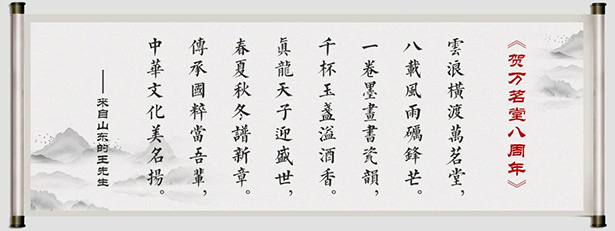 《贺万茗堂八周年》
雲浪橫渡萬茗堂，
八載風雨礪鋒芒。
一卷墨畫書瓷韻，
千杯玉盞溢酒香。
眞龍天子迎盛世，
春夏秋冬譜新章。
傳承國粹當吾輩，
中華文化美名揚。
——来自山东的王先生